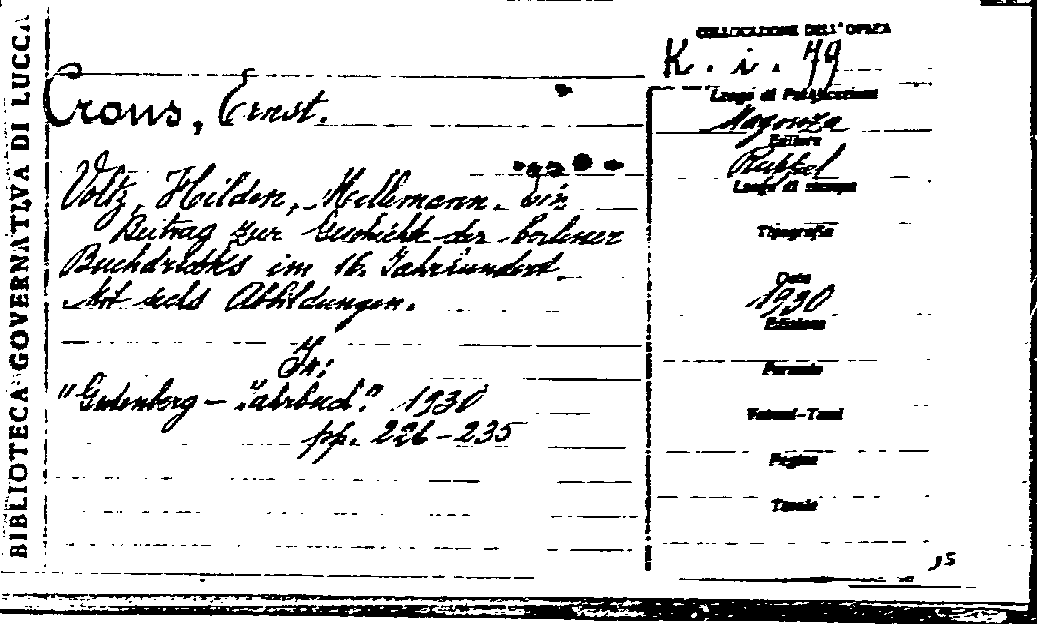 BIBLIOTECA GOVERNATIVA DI LUCCA
COLLOCAZIONE DELL'OPERA
K. i. 79
Crous, Ernst.
Voltz, Hilden, Mellemann. Ein
Beitrag zur Geschichte der Berliner
Buchdrucks im 16. Jahrhundert.
Mit sechs Abbildungen.
In:
"Gutenberg - Jahrbuch". 1930
pp. 226-235
Luogo di Pubblicazione
Magonza
Editore
Ruppel
Luogo di stampa
Tipografia
Data
1930
Edizione
Formato
Volumi-Tomi
Pagine
Tavole
15